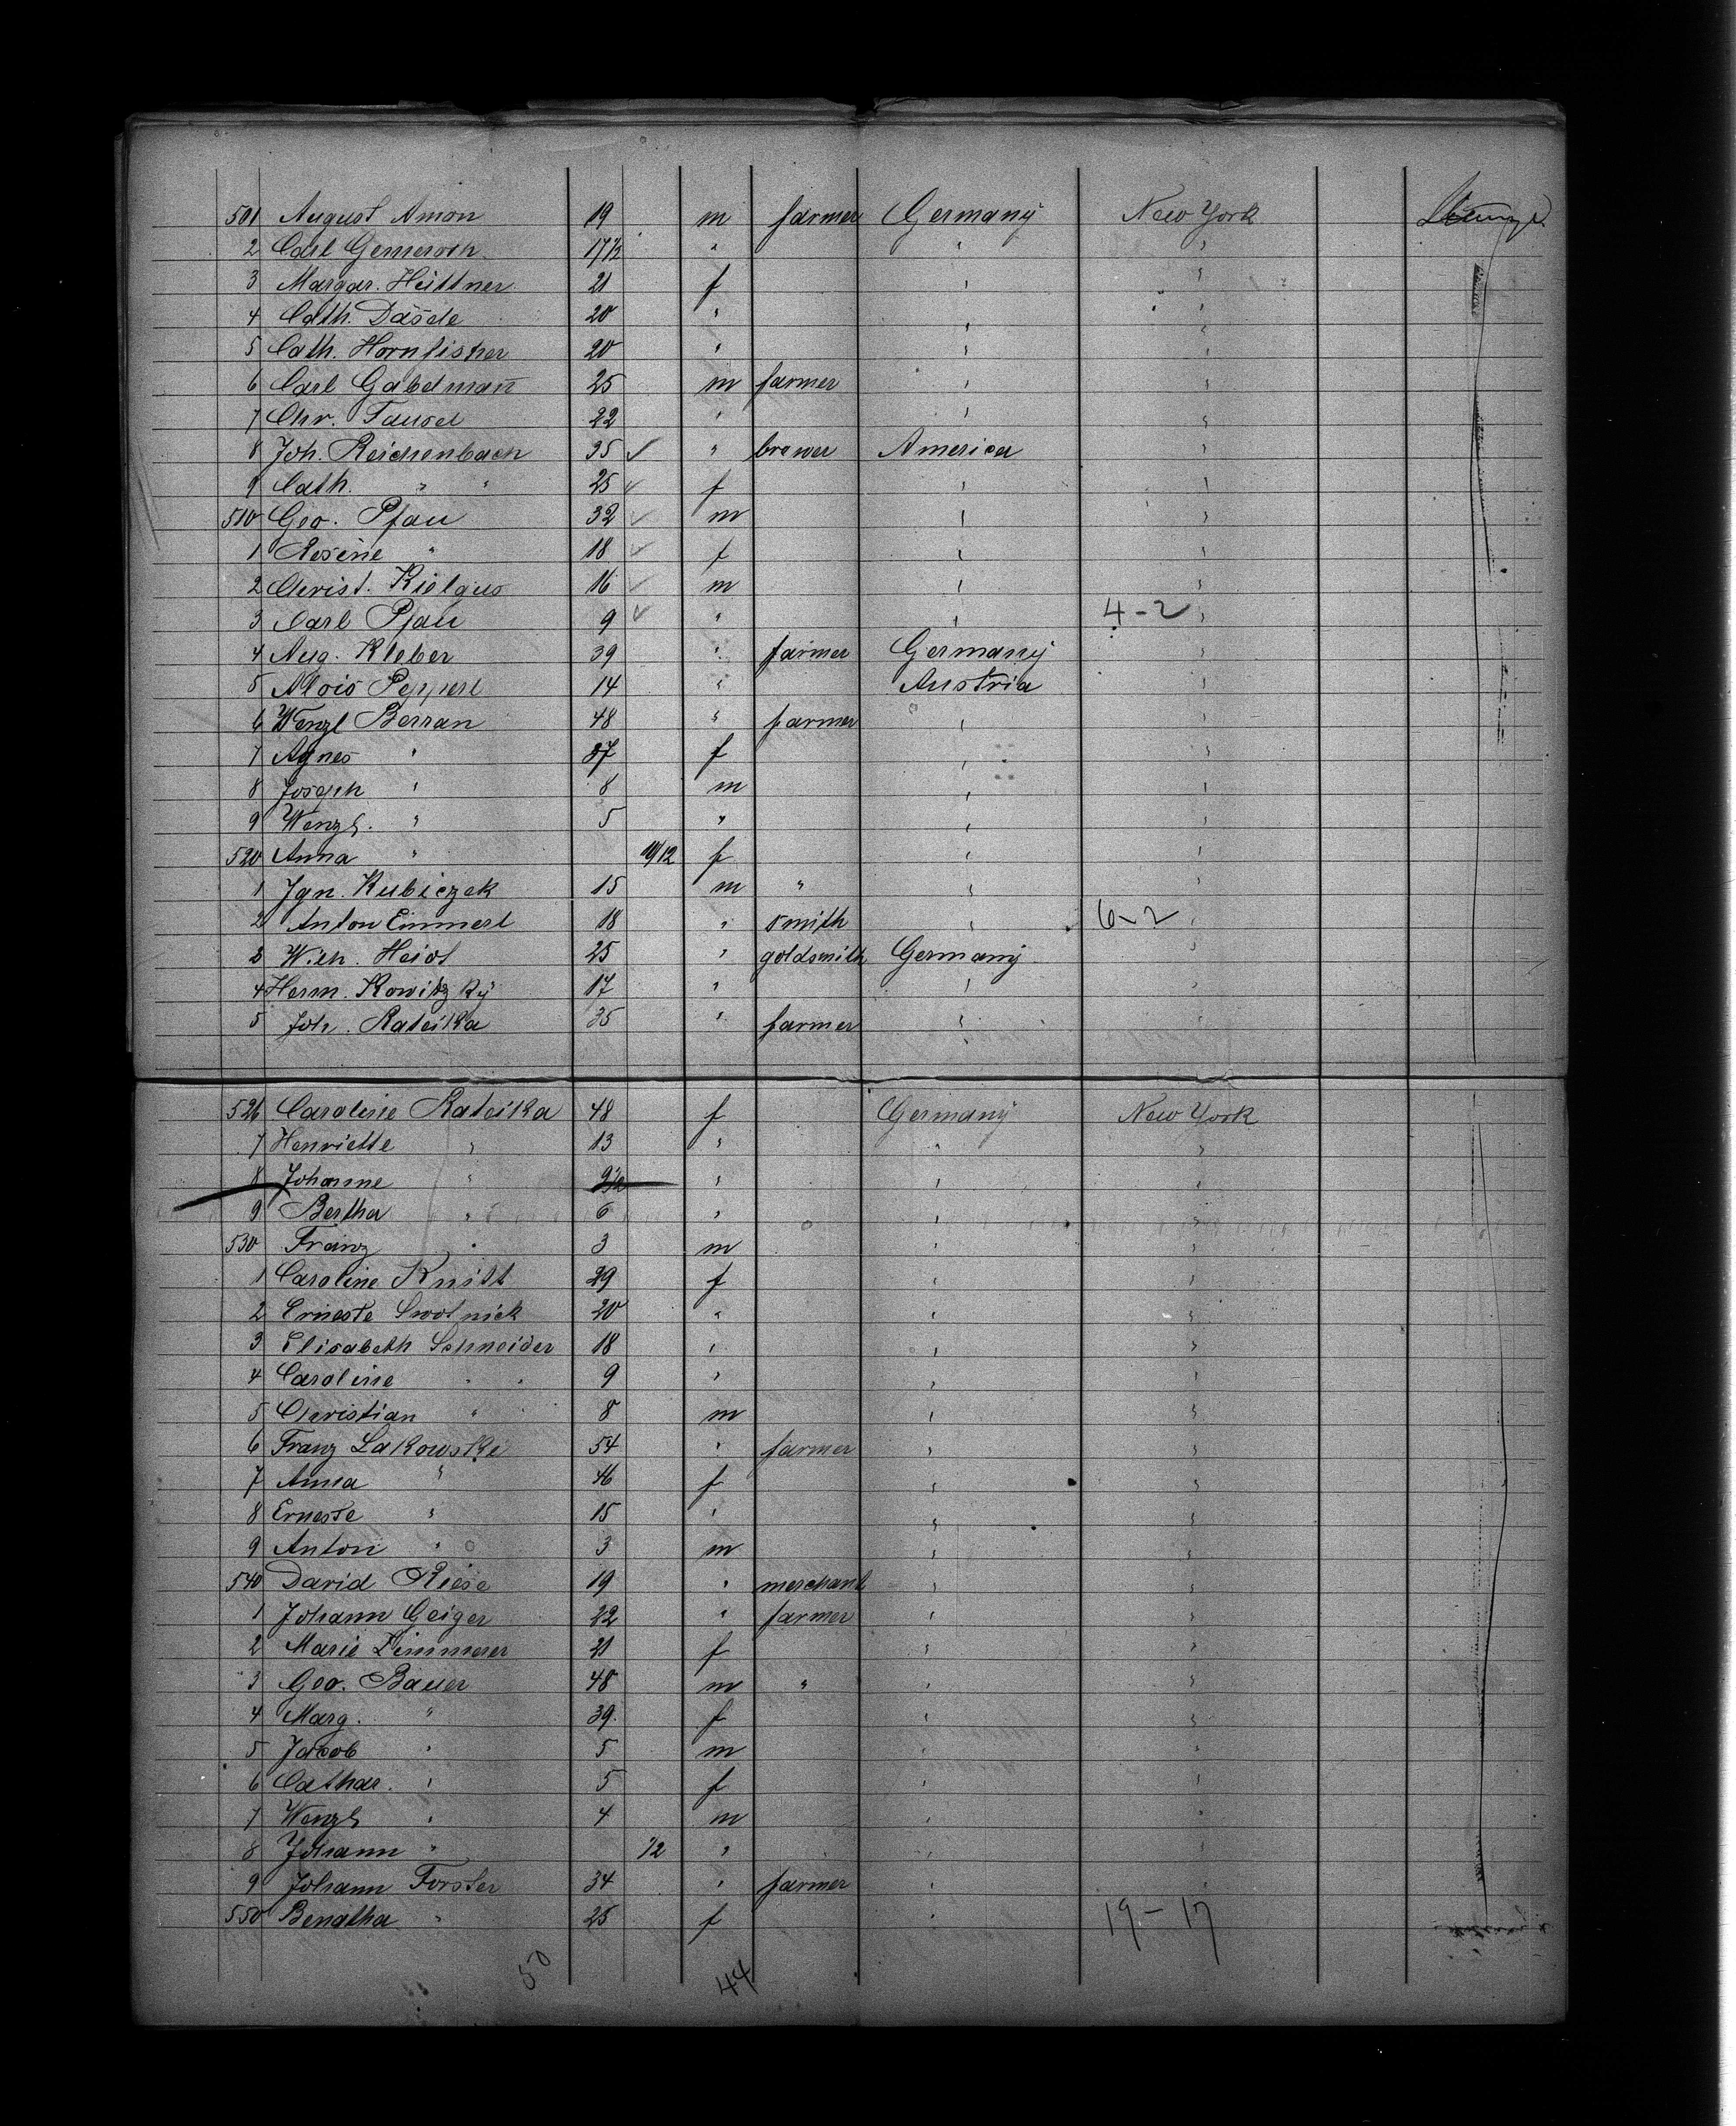 501 August Amon 19 m farmer Germany New York
2 Carl Gemeroth 17½ " " "
3 Margar. Hüttner 21 f " "
4 Cath. Däsde 20 " " "
5 Cath. Hornfischer 20 " " "
6 Carl Gabelmañ 25 m farmer " "
7 Chr. Fausel 22 " " "
8 Joh. Reichenbach 35 ✓ " brewer America "
9 Cath. " " 25 ✓ f " "
510 Geo. Pfau 32 ✓ m " "
1 Rosine " 18 ✓ f " "
2 Christ. Kielgus 16 ✓ m " "
3 Carl Pfau 9 ✓ " " 4-2 "
4 Aug. Kleber 39 " farmer Germany "
5 Alois Pepperl 14 " Austria "
6 Wenzl Berran 48 " farmer " "
7 Agnes " 37 f " "
8 Joseph " 8 m " "
9 Wenzl. " 5 " " "
520 Anna " 10/12 f " "
1 Ign. Kubiczek 15 m " " "
2 Anton Eimmerl 18 " smith " 6-2 "
3 Wilh. Heidt 25 " goldsmith Germany "
4 Herm. Kowitzky 17 " " "
5 Joh. Rateika 35 " farmer " "
526 Caroline Rateika 48 f Germany New York
7 Henriette " 13 " " "
8 Johanne " 9½ " " "
9 Bertha " 6 " " "
530 Franz " 3 m " "
1 Caroline Knitt 29 f " "
2 Erneste 20 " " "
3 Elisabeth Schneider 18 " " "
4 Caroline " " 9 " " "
5 Christian " 8 m " "
6 Franz Lakowski 54 " farmer " "
7 Anna " 46 f " "
8 Erneste " 15 " " "
9 Anton " 3 m " "
540 David Riese 19 " merchant " "
1 Johann Geiger 22 " farmer " "
2 Marie Zimmerer 21 f " "
3 Geo. Bauer 48 m " " "
4 Marg. " 39 f " "
5 Jacob " 5 m " "
6 Cathar. " 5 f " "
7 Wenzl " 4 m " "
8 Johann " ½ " " "
9 Johann Forster 34 " farmer " "
550 Benatha " 25 f " 19-17
50 44